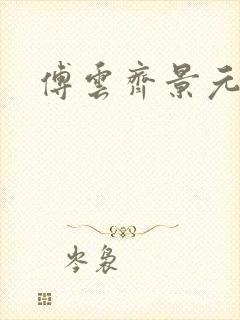 傅雲齊景元
岑袅